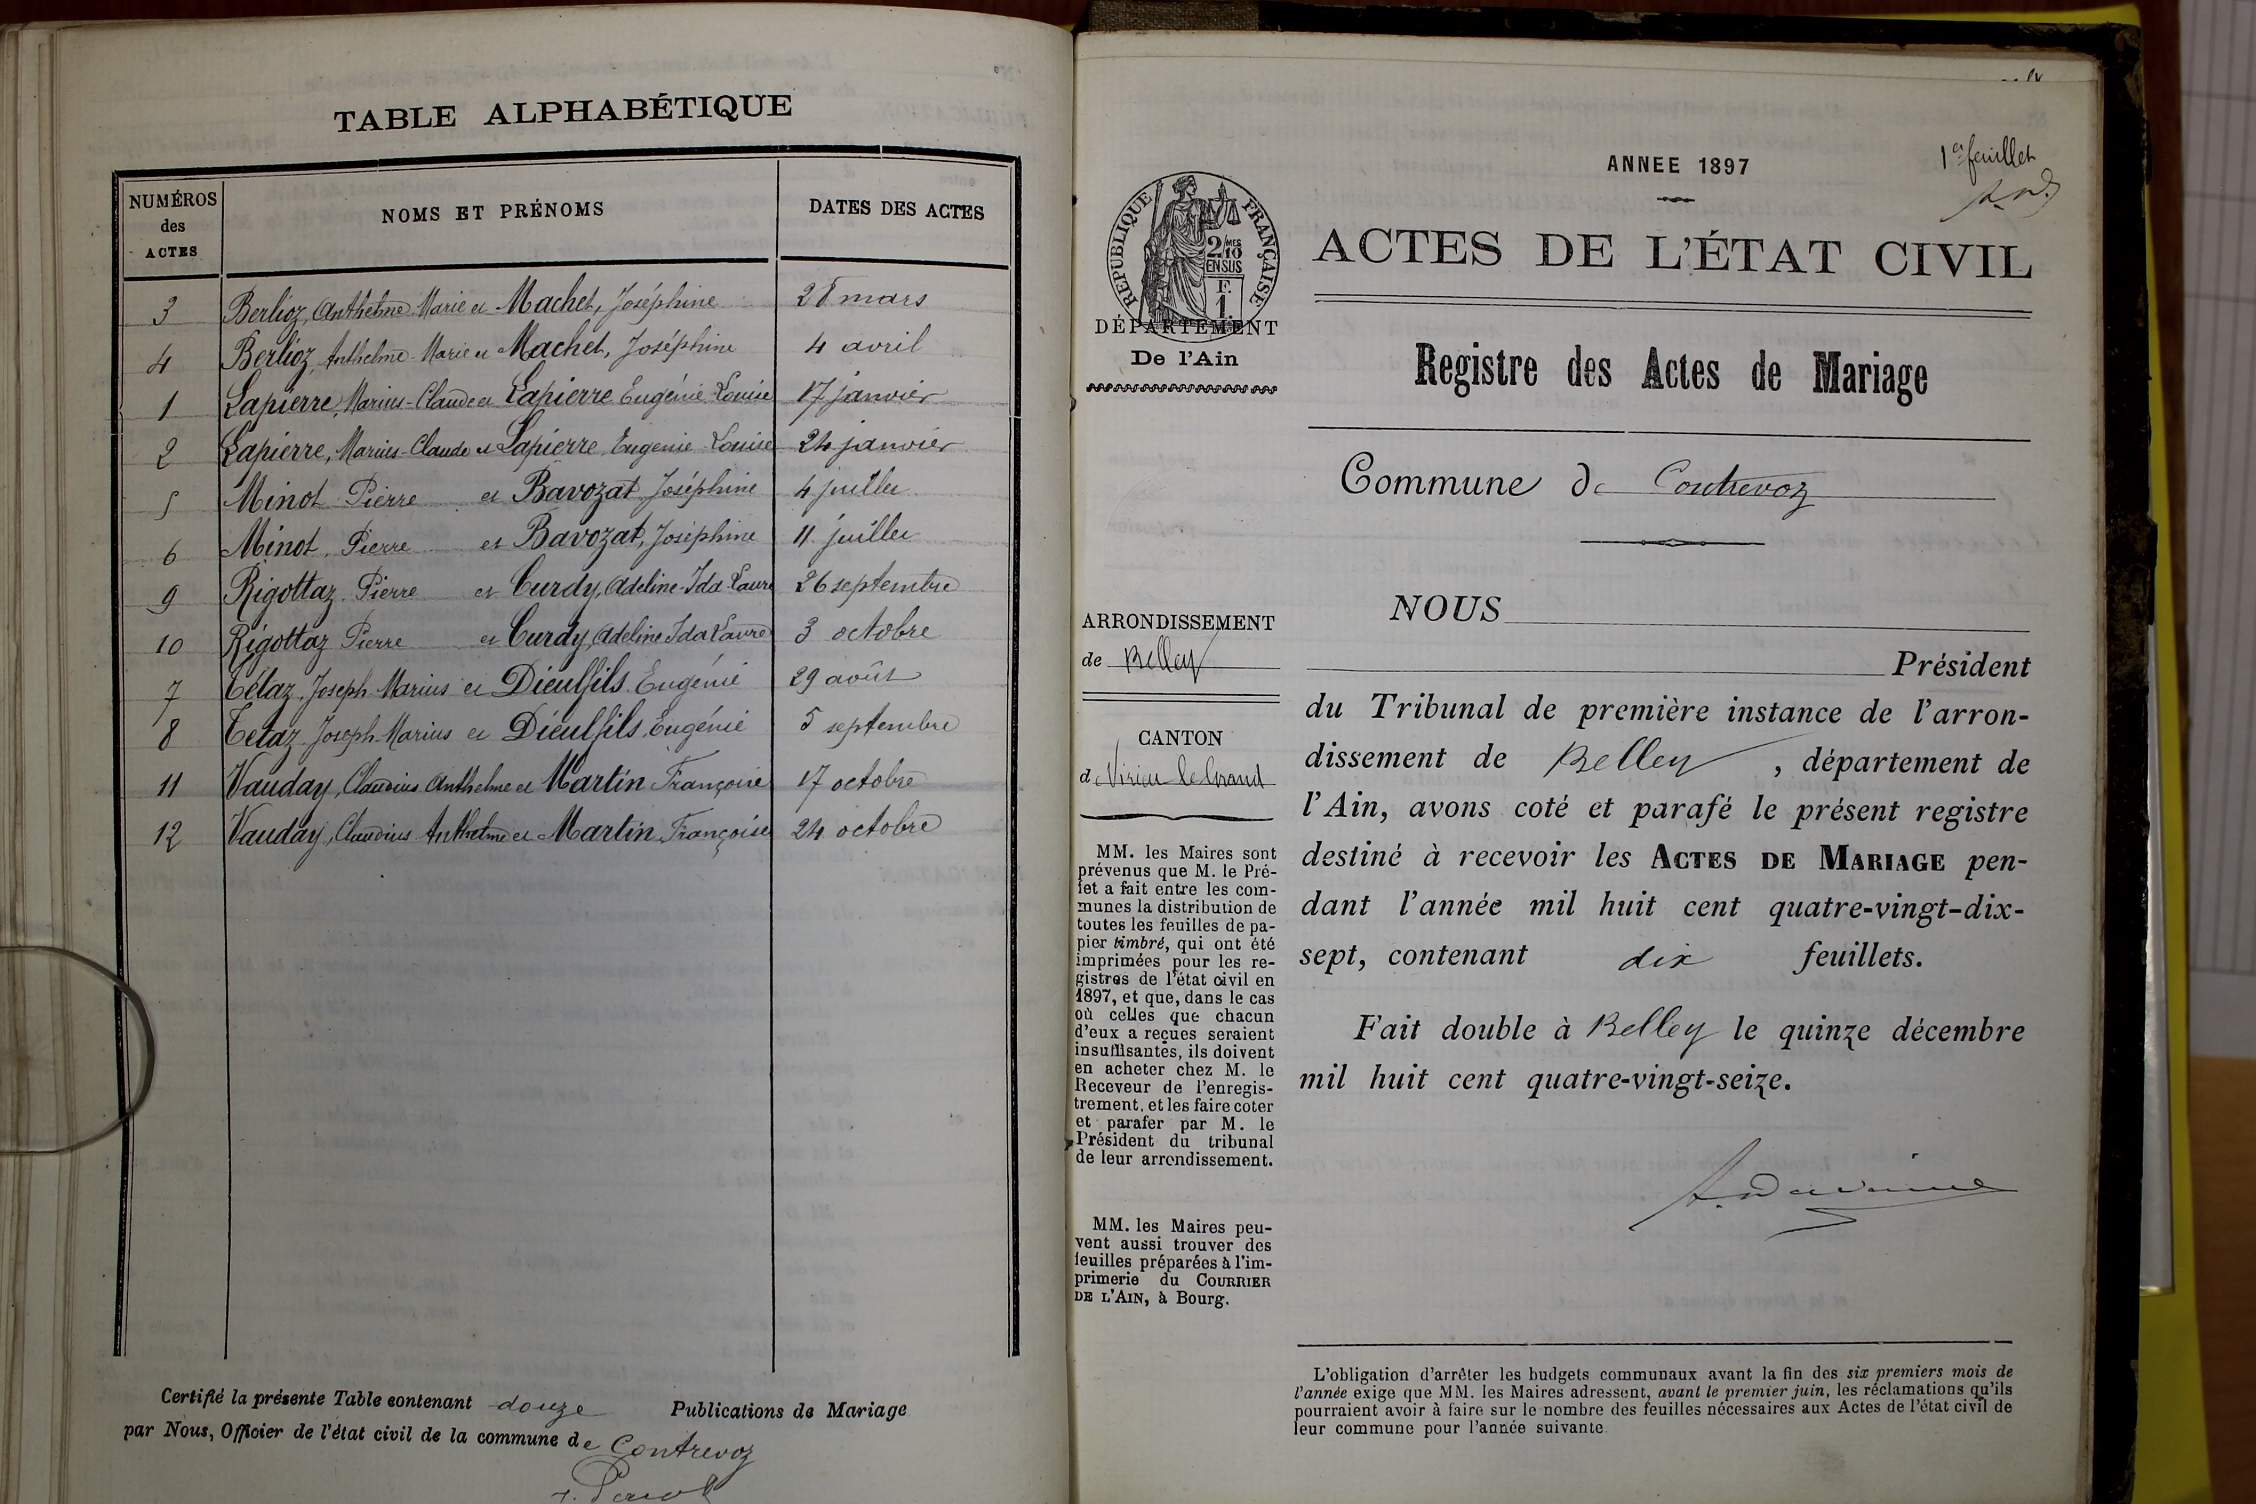 TABLE ALPHABÉTIQUE
NUMÉROS des ACTES NOMS ET PRÉNOMS DATES DES ACTES
3 Berlioz, Anthelme Marie et Machet, Joséphine 28 mars
4 Berlioz, Anthelme Marie et Machet, Joséphine 4 avril
1 Lapierre, Marius-Claude et Lapierre Eugénie Louise 17 janvier
2 Lapierre, Marius-Claude et Lapierre Eugenie Louise 24 janvier
5 Minot Pierre et Bavozat Joséphine 4 juillet
6 Minot, Pierre et Bavozat, Joséphine 11 juillet
9 Rigottaz Pierre et Curdy, Adeline-Ida Laure 26 septembre
10 Rigottaz Pierre et Curdy, Adeline Ida Laure 3 octobre
7 Tétaz, Joseph Marius et Dieulfils Eugénie 29 août
8 Tetaz Joseph Marius et Dieulfils, Eugénie 5 septembre
11 Vauday, Claudius Anthelme et Martin Françoise 17 octobre
12 Vauday, Claudius Anthelme et Martin Françoise 24 octobre
Certifié la présente Table contenant douze Publications de Mariage
par Nous, Officier de l'état civil de la commune de Contrevoz
1er feuillet
ANNEE 1897
RÉPUBLIQUE FRANÇAISE
2/10MES
EN SUS
F.
1.
ACTES DE L'ÉTAT CIVIL
DÉPARTEMENT
De l'Ain
Registre des Actes de Mariage
Commune de Contrevoz
ARRONDISSEMENT
de Belley
CANTON
de Virieu le Grand
MM. les Maires sont
prévenus que M. le Pré-
fet a fait entre les com-
munes la distribution de
toutes les feuilles de pa-
pier timbré, qui ont été
imprimées pour les re-
gistres de l'état civil en
1897, et que, dans le cas
où celles que chacun
d'eux a reçues seraient
insuffisantes, ils doivent
en acheter chez M. le
Receveur de l'enregis-
trement, et les faire coter
et parafer par M. le
Président du tribunal
de leur arrondissement.
MM. les Maires peu-
vent aussi trouver des
feuilles préparées à l'im-
primerie du COURRIER
DE L'AIN, à Bourg.
NOUS
Président
du Tribunal de première instance de l'arron-
dissement de Belley, département de
l'Ain, avons coté et parafé le présent registre
destiné à recevoir les ACTES DE MARIAGE pen-
dant l'année mil huit cent quatre-vingt-dix-
sept, contenant dix feuillets.
Fait double à Belley le quinze décembre
mil huit cent quatre-vingt-seize.
L'obligation d'arrêter les budgets communaux avant la fin des six premiers mois de
l'année exige que MM. les Maires adressent, avant le premier juin, les réclamations qu'ils
pourraient avoir à faire sur le nombre des feuilles nécessaires aux Actes de l'état civil de
leur commune pour l'année suivante.